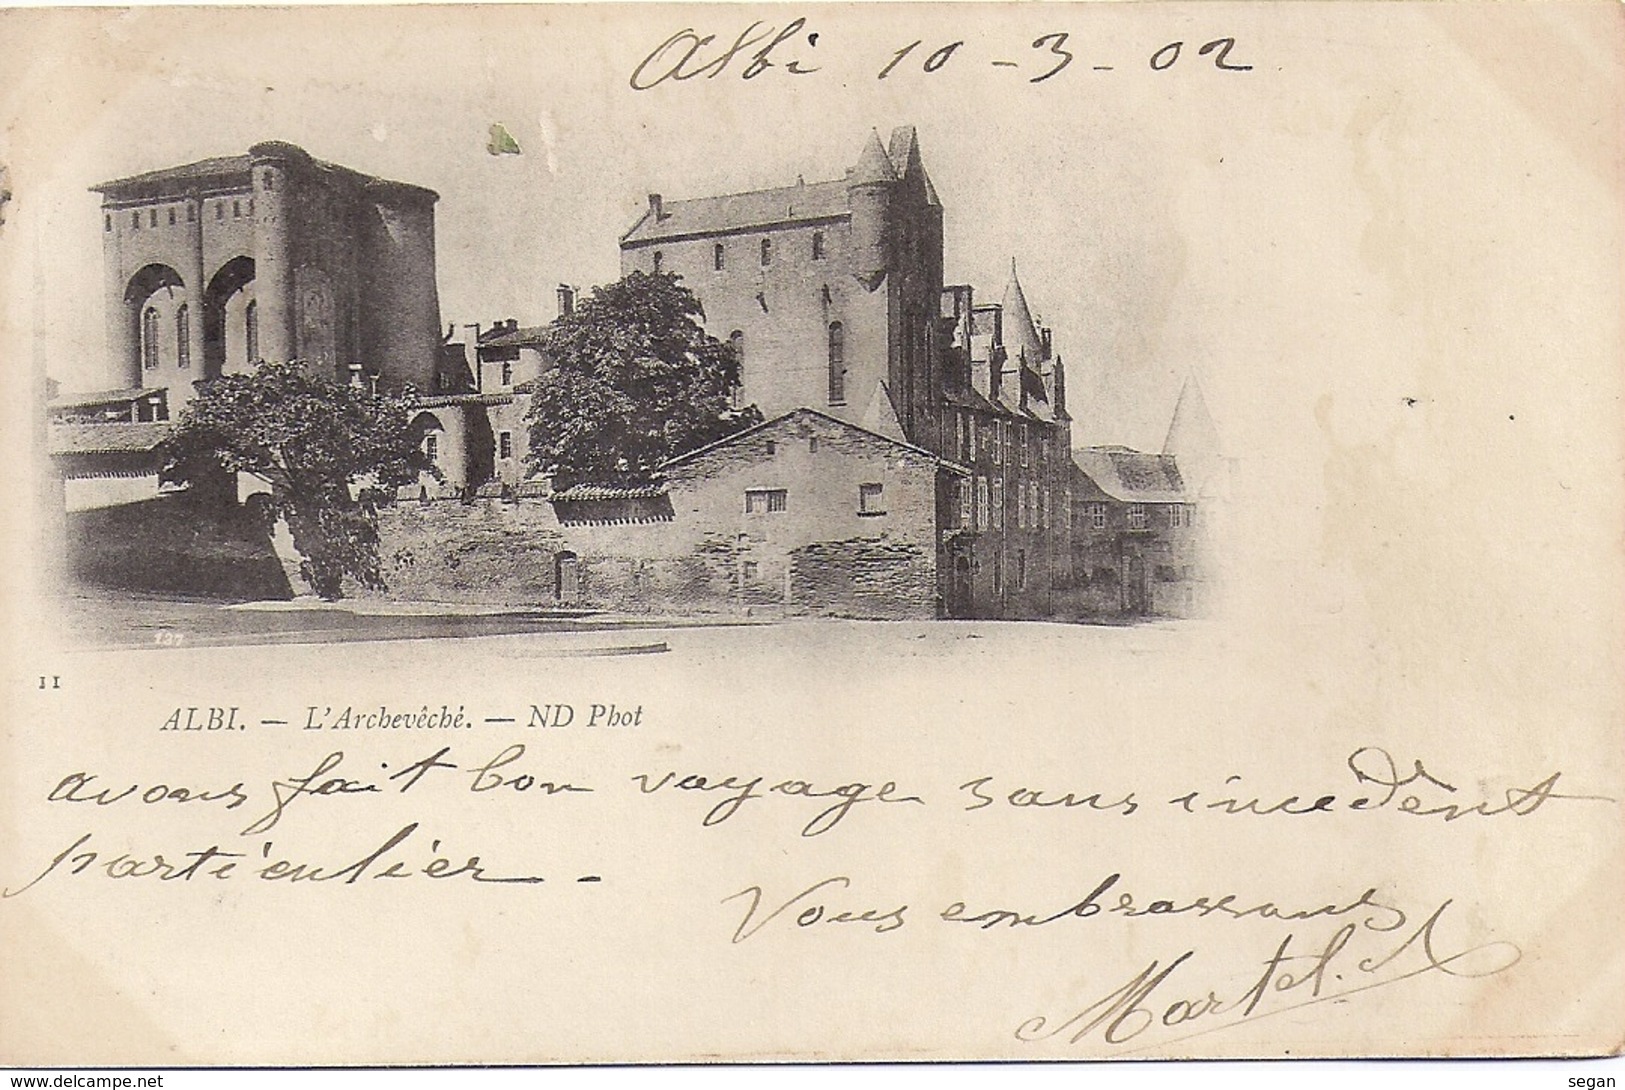 Albi 10 - 3 - 02
127
11
ALBI. — L'Archevêché. — ND Phot
avons fait bon voyage sans incedent
particulier -
Vous embrassons
Martel.
© DELCAMPE.net
segan